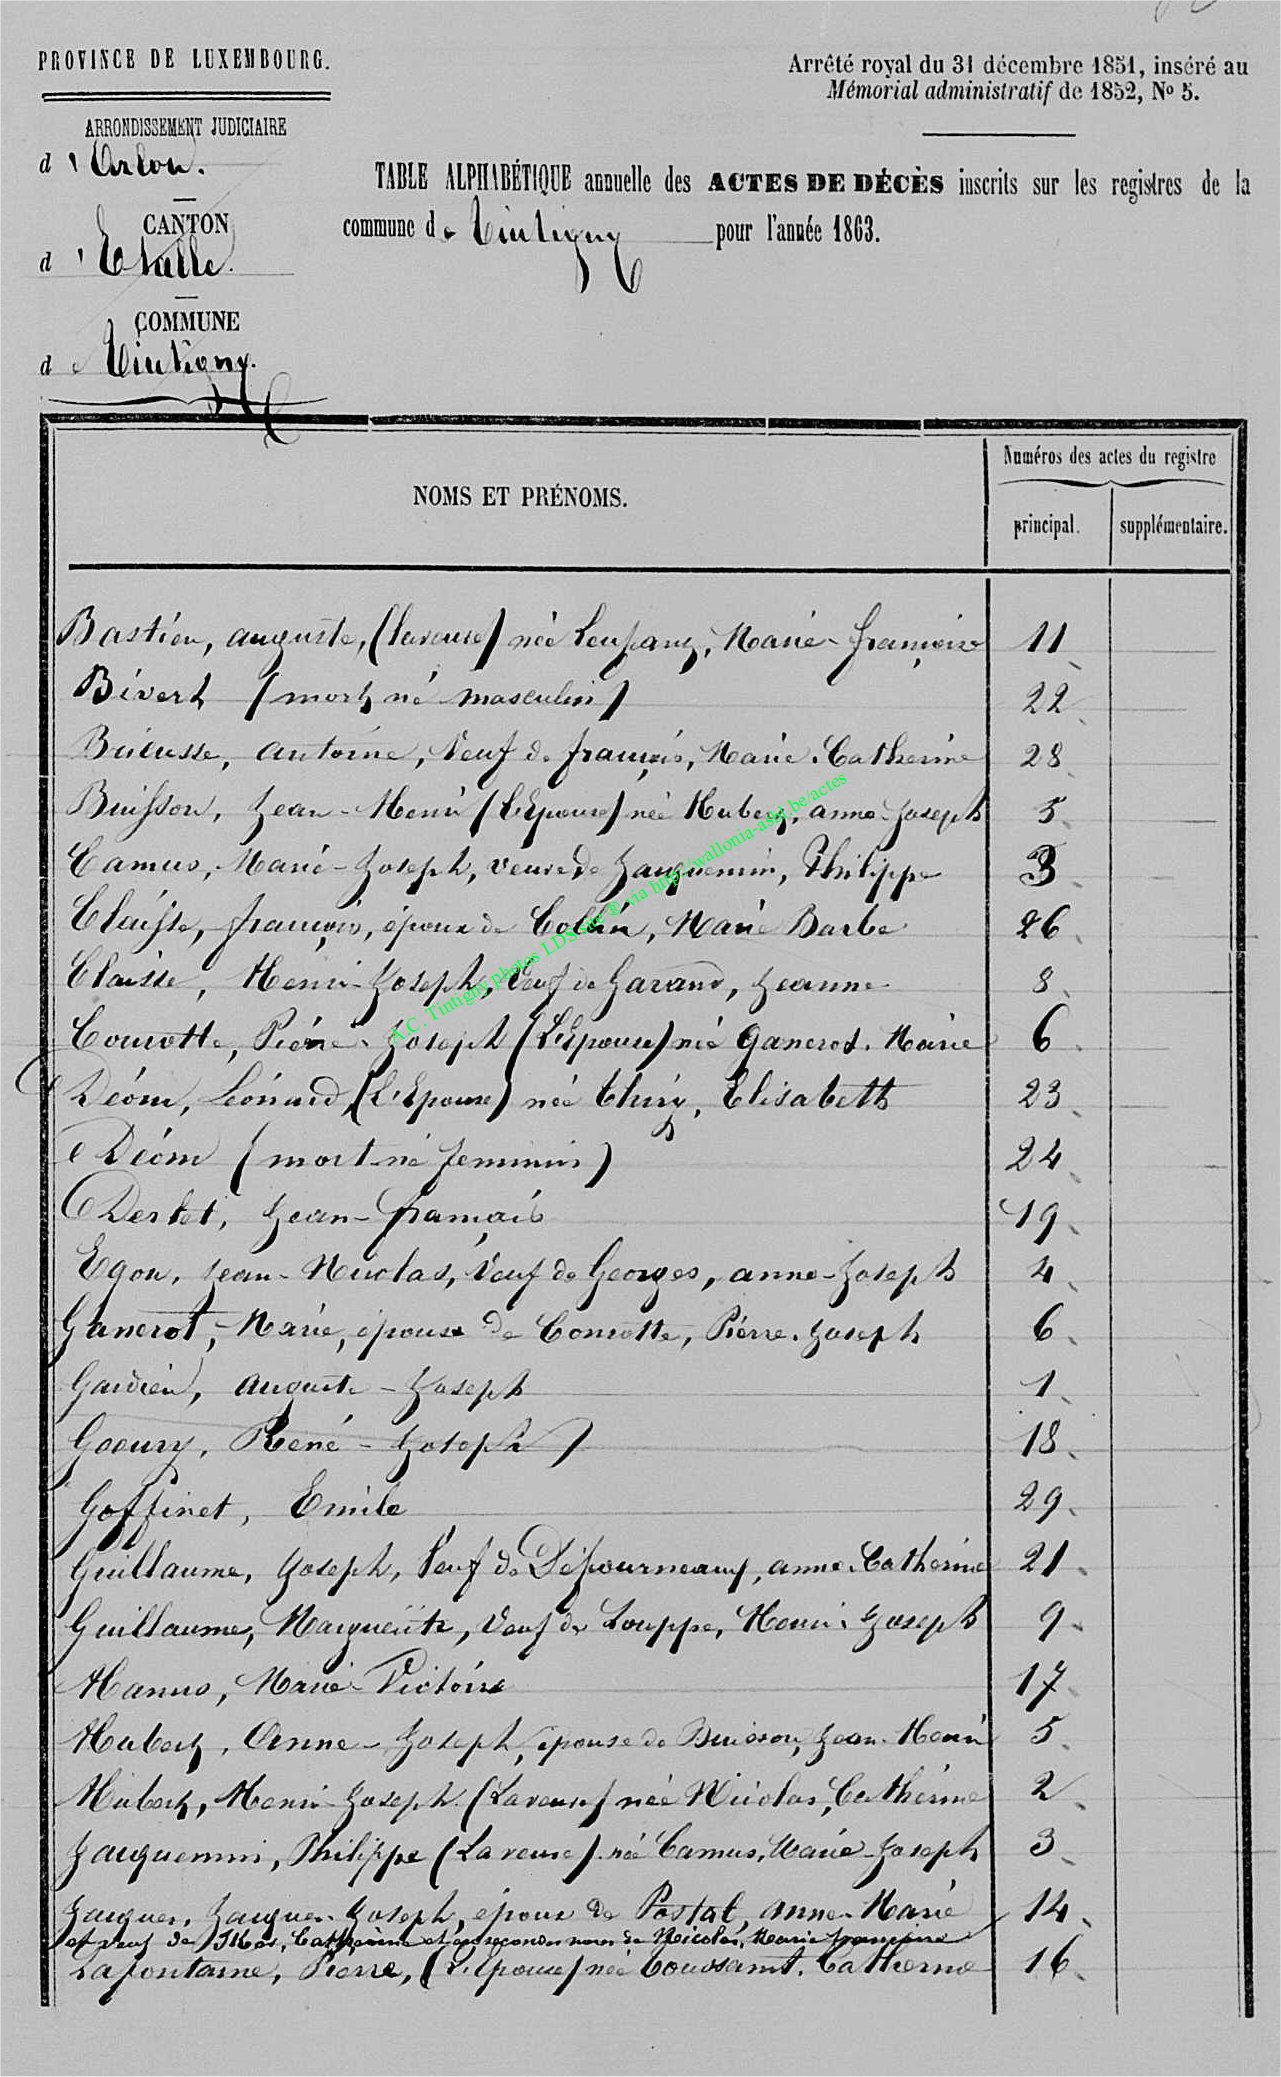 PROVINCE DE LUXEMBOURG.
Arrêté royal du 31 décembre 1851, inséré au
Mémorial administratif de 1852, No 5.
ARRONDISSEMENT JUDICIAIRE
d'Arlon.
CANTON
d'Etalle.
COMMUNE
de Tintigny.
TABLE ALPHABÉTIQUE annuelle des ACTES DE DÉCÈS inscrits sur les registres de la
commune de Tintigny pour l'année 1863.
NOMS ET PRÉNOMS.
Numéros des actes du registre
principal.
supplémentaire.
Bastien, auguste, (la veuve) née Marie-françoise 11
Bivert (mort né masculin) 22
antoine, Veuf de françois, Marie Catherine 28
Buisson, Jean-Henri (L'Epouse) née Hubert, anne-Joseph 5
Camus, Marie-Joseph, veuve de Jacquemin, Philippe 3
Claisse, françois, époux de Collin, Marie Barbe 26
Claisse, Henri-Joseph, Veuf de Garand, Jeanne 8
Cornette, Pierre-Joseph (L'Epouse) née Ganerot, Marie 6
Déom, Léonard, (L'Epouse) née Thiry, Elisabeth 23
Déom (mort-né feminin) 24
Jean-françois 19
Egon, Jean-Nicolas, Veuf de Georges, anne-Joseph 4
Ganerot, Marie, épouse de Cornette, Pierre-Joseph 6
Gardien, auguste-Joseph 1
Goeury, René-Joseph 18
Goffinet, Emile 29
Guillaume, Joseph, Veuf de Defourneaux, anne-Catherine 21
Guillaume, Marguerite, Veuf de Louppe, Henri-Joseph 9
Hanus, Marie-Victoire 17
Hubert, Anne-Joseph, épouse de Buisson, Jean-Henri 5
Hubert, Henri-Joseph (La veuve) née Nicolas, Catherine 2
Jacquemin, Philippe (La veuve) née Camus, Marie-Joseph 3
Jacques, Jacques-Joseph, époux de Postal, Anne-Marie 14
et veuf de Catherine et en secondes noces de Nicolas, Marie françoise
Lafontaine, Pierre, (L'Epouse) née Toussaint, Catherine 16
A.C. Tintigny photos LDS via http://wallonia-asbl.be/actes